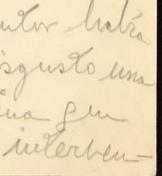 utor había
isgusto una
ina gu
interven-